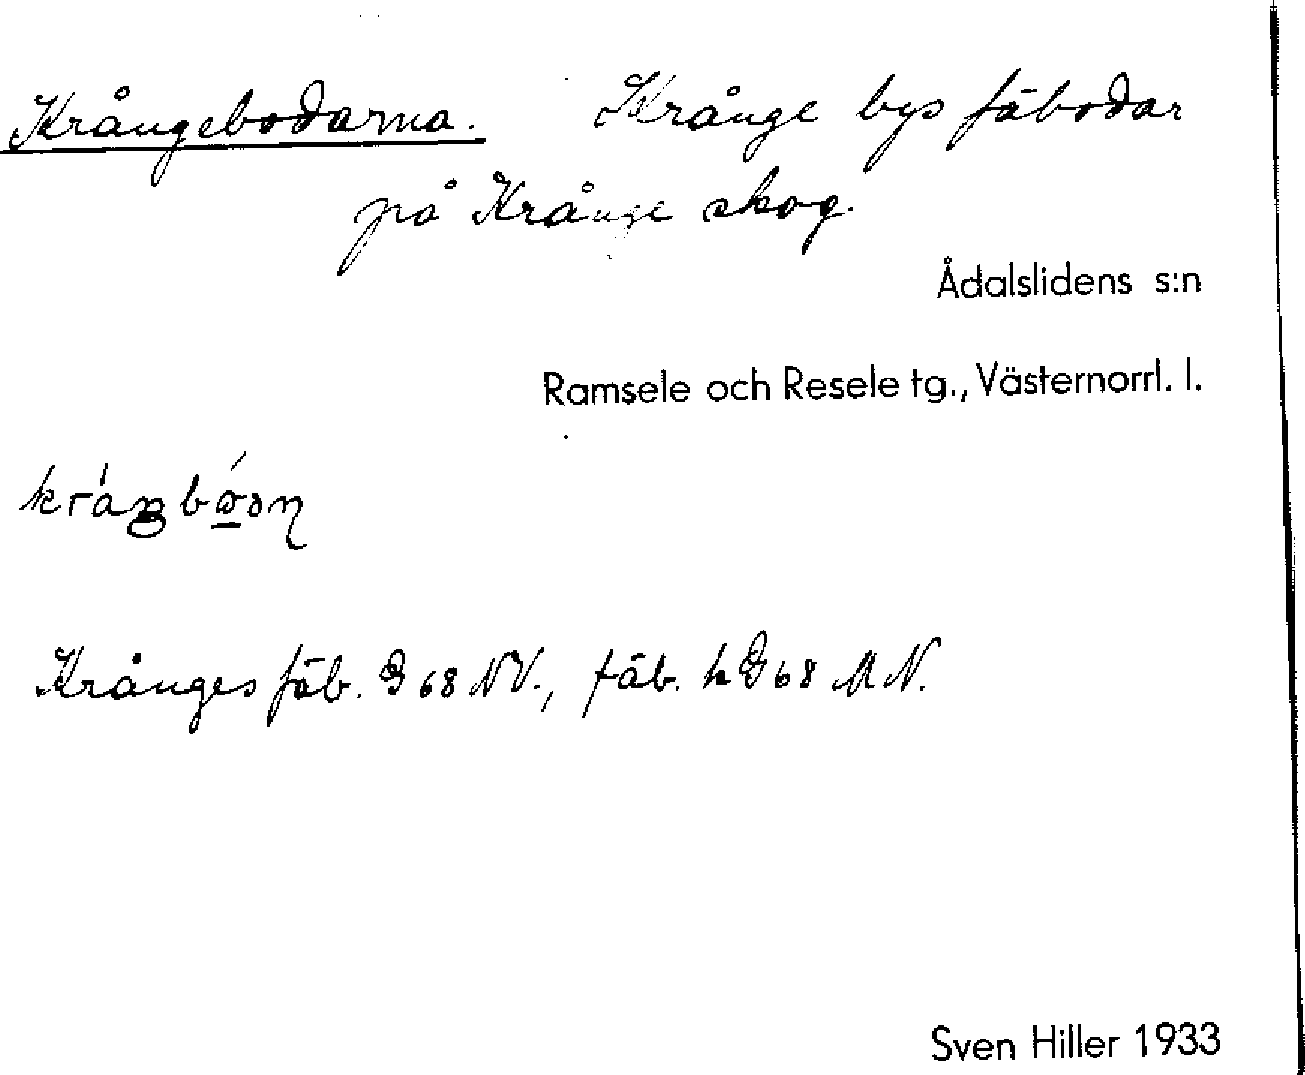 Krångebodarna. Krånge bys fäbodar
på Krånge skog.
Ådalslidens s:n
Ramsele och Resele tg., Västernorrl. l.
Krånges fäb. G 68 NV., fäb. h G 68 MN.
Sven Hiller 1933